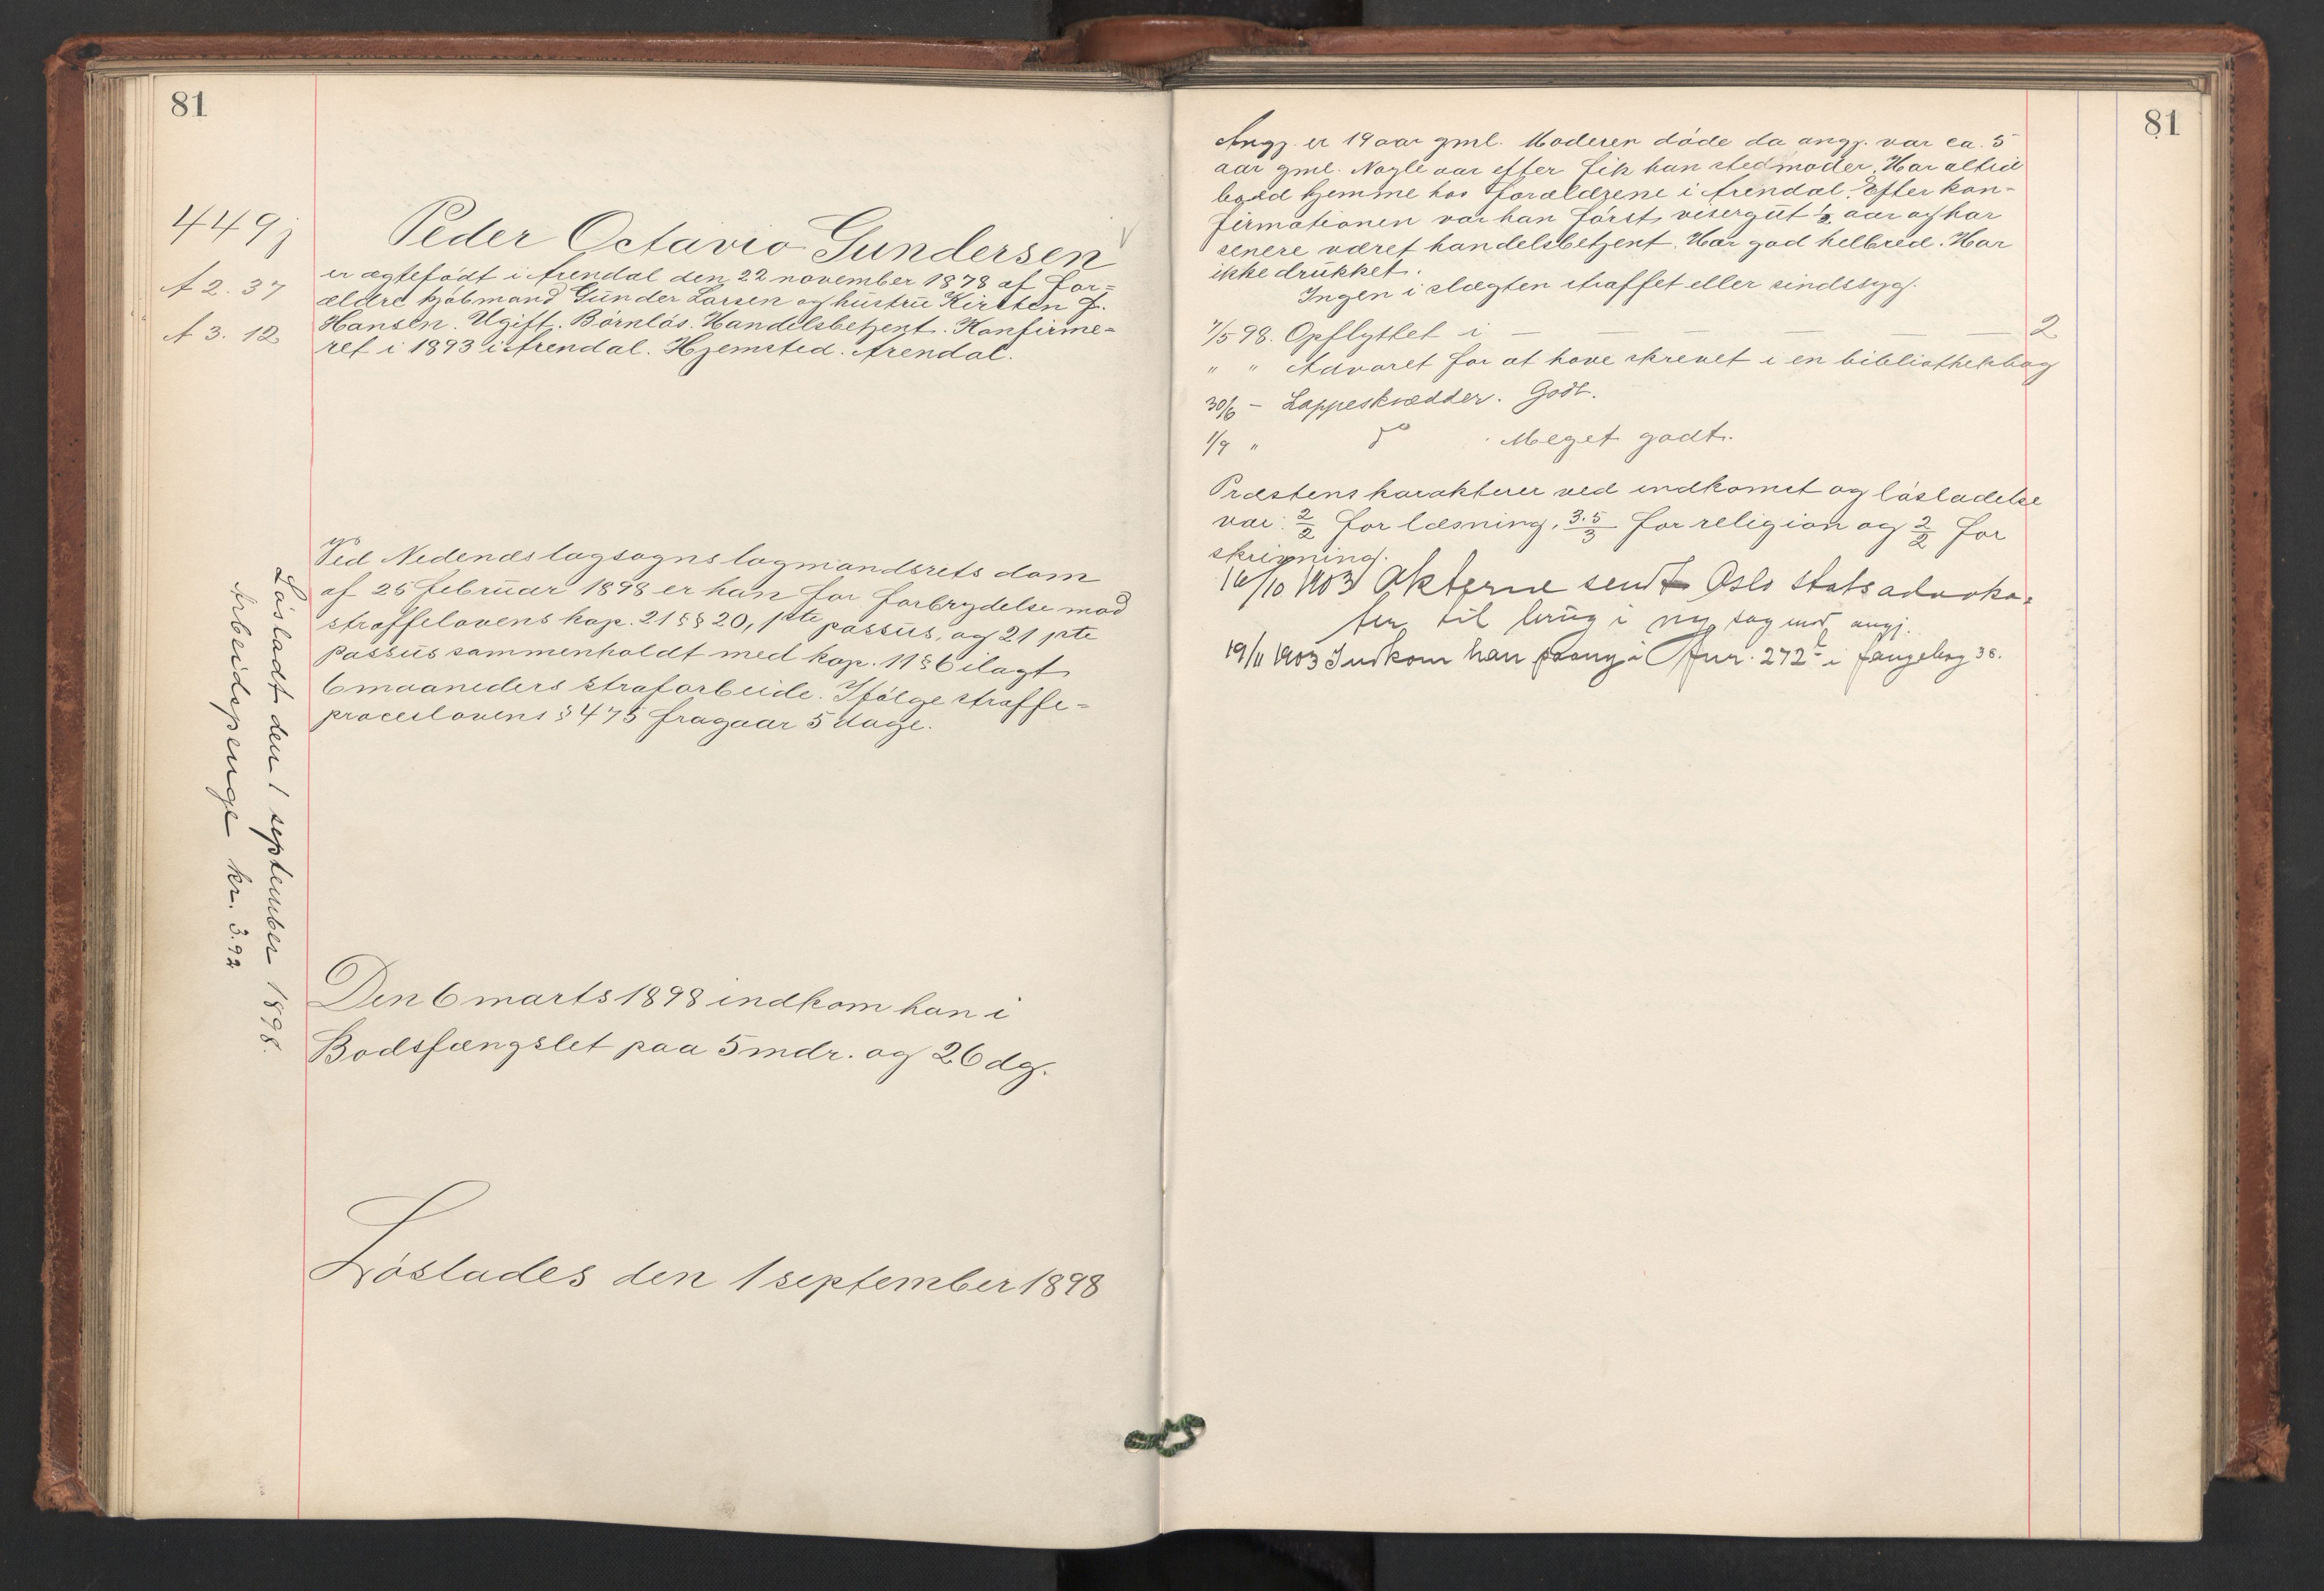 81
449j
A 2. 37
A 3. 12
Peder Octavio Gundersen
er ægtefødt i Arendal den 22 november 1878 af for=
ældre kjøbmand Gunder Larsen og hustru Kirsten f.
Hansen. Ugift. Börnlös. Handelsbetjent. Konfirme=
ret i 1893 i Arendal. Hjemsted. Arendal.
Ved Nedenæs lagsogns lagmandsrets dom
af 25 februar 1898 er han for forbrydelse mod
straffelovens kap. 21 §§ 20, 1ste passus, og 21 1ste
passus sammenholdt med kap. 11 § 6 ilagt
6 maaneders strafarbeide. Ifölge straffe=
proceslovens § 475 fragaar 5 dage.
Lösladt den 1 september 1898.
Arbeidspenge kr. 3.92
Den 6 marts 1898 indkom han i
Bodsfængslet paa 5 mdr. og 26 dg.
Löslades den 1 september 1898
81
Angj. er 19 aar gml. Moderen döde da angj. var ca. 5
aar gml. Nogle aar efter fik han stedmoder. Har altid
boed hjemme hos forældrene i Arendal. Efter kon-
firmationen var han först visergut ½ aar og har
senere været handelsbetjent. Har god helbred. Har
ikke drukket.
Ingen i slægten straffet eller sindssyg.
7/5 98. Opflyttet i — — — — — 2
" " Advaret for at have skrevet i en bibliothekbog
30/6 - Lappeskrædder. Godt.
1/9 " do Meget godt.
Præstens karakterer ved indkomst og lösladelse
var: 2/2 for læsning, 3.5/3 for religion og 2/2 for
skrivning.
16/10 1903 Akterne sendt Oslo statsadvoka=
ter til brug i ny sag mod angj.
19/11 1903 Indkom han paany i Afnr. 272 i fangebog 38.